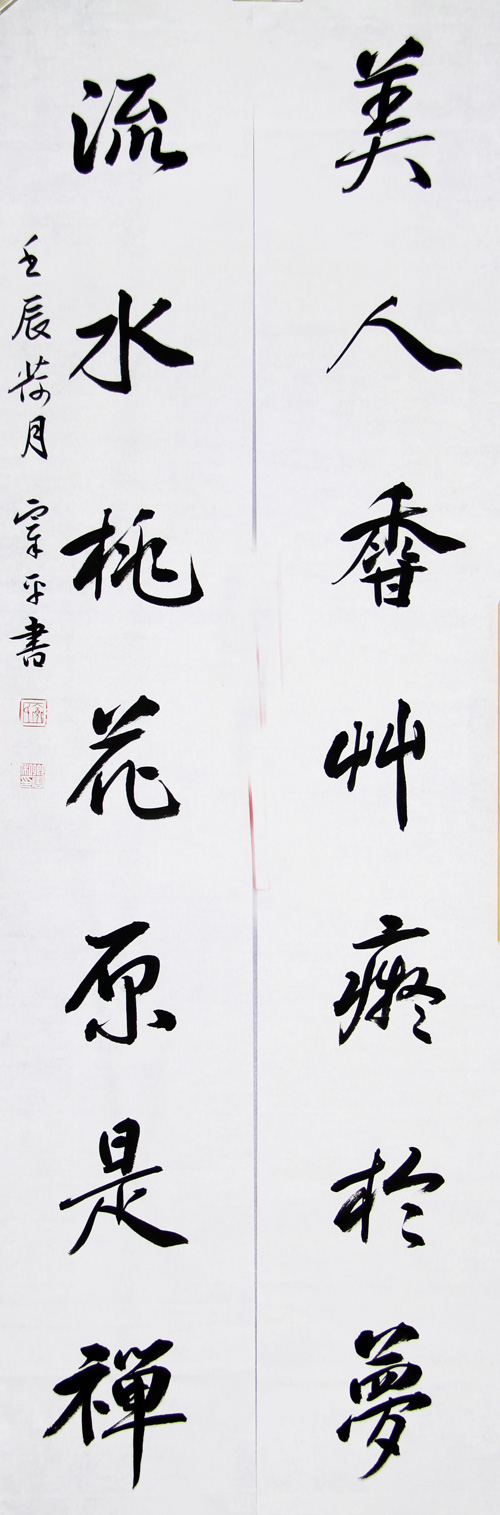 美人香艸癡於夢
流水桃花原是禪
壬辰荷月 平書